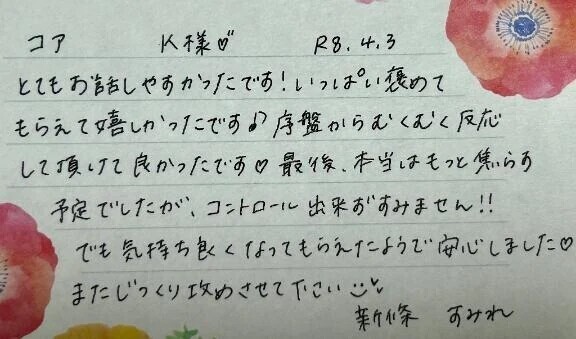 コア K様♡ R8.4.3
とてもお話しやすかったです!いっぱい褒めて
もらえて嬉しかったです♪序盤からむくむく反応
して頂けて良かったです♡最後、本当はもっと焦らす
予定でしたが、コントロール出来ずすみません!!
でも気持ち良くなってもらえたようで安心しました♡
またじっくり攻めさせて下さい
新條 すみれ